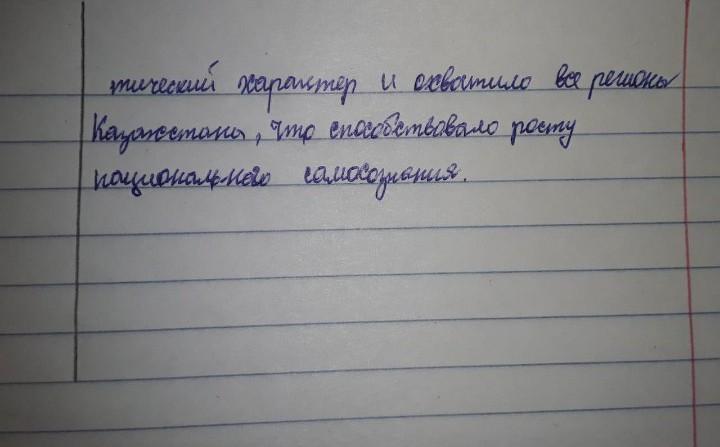 тический характер и охватило все регионы
Казахстана, что способствовало росту
национального самосознания.